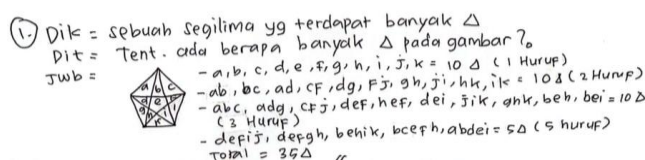 1. Dik = sebuah segilima yg terdapat banyak △
Dit = Tent. ada berapa banyak △ pada gambar?
Jwb =
a b c
d e f
g h i j
k
- a, b, c, d, e, f, g, h, i, j, k = 10 △ (1 Huruf)
- ab, bc, ad, cf, dg, Fj, gh, ji, hk, ik = 10△ (2 Huruf)
- abc, adg, cfj, def, hef, dei, jik, ghk, beh, bei = 10△
(3 Huruf)
- defij, defgh, behik, bcefh, abdei = 5△ (5 huruf)
Total = 35△ //